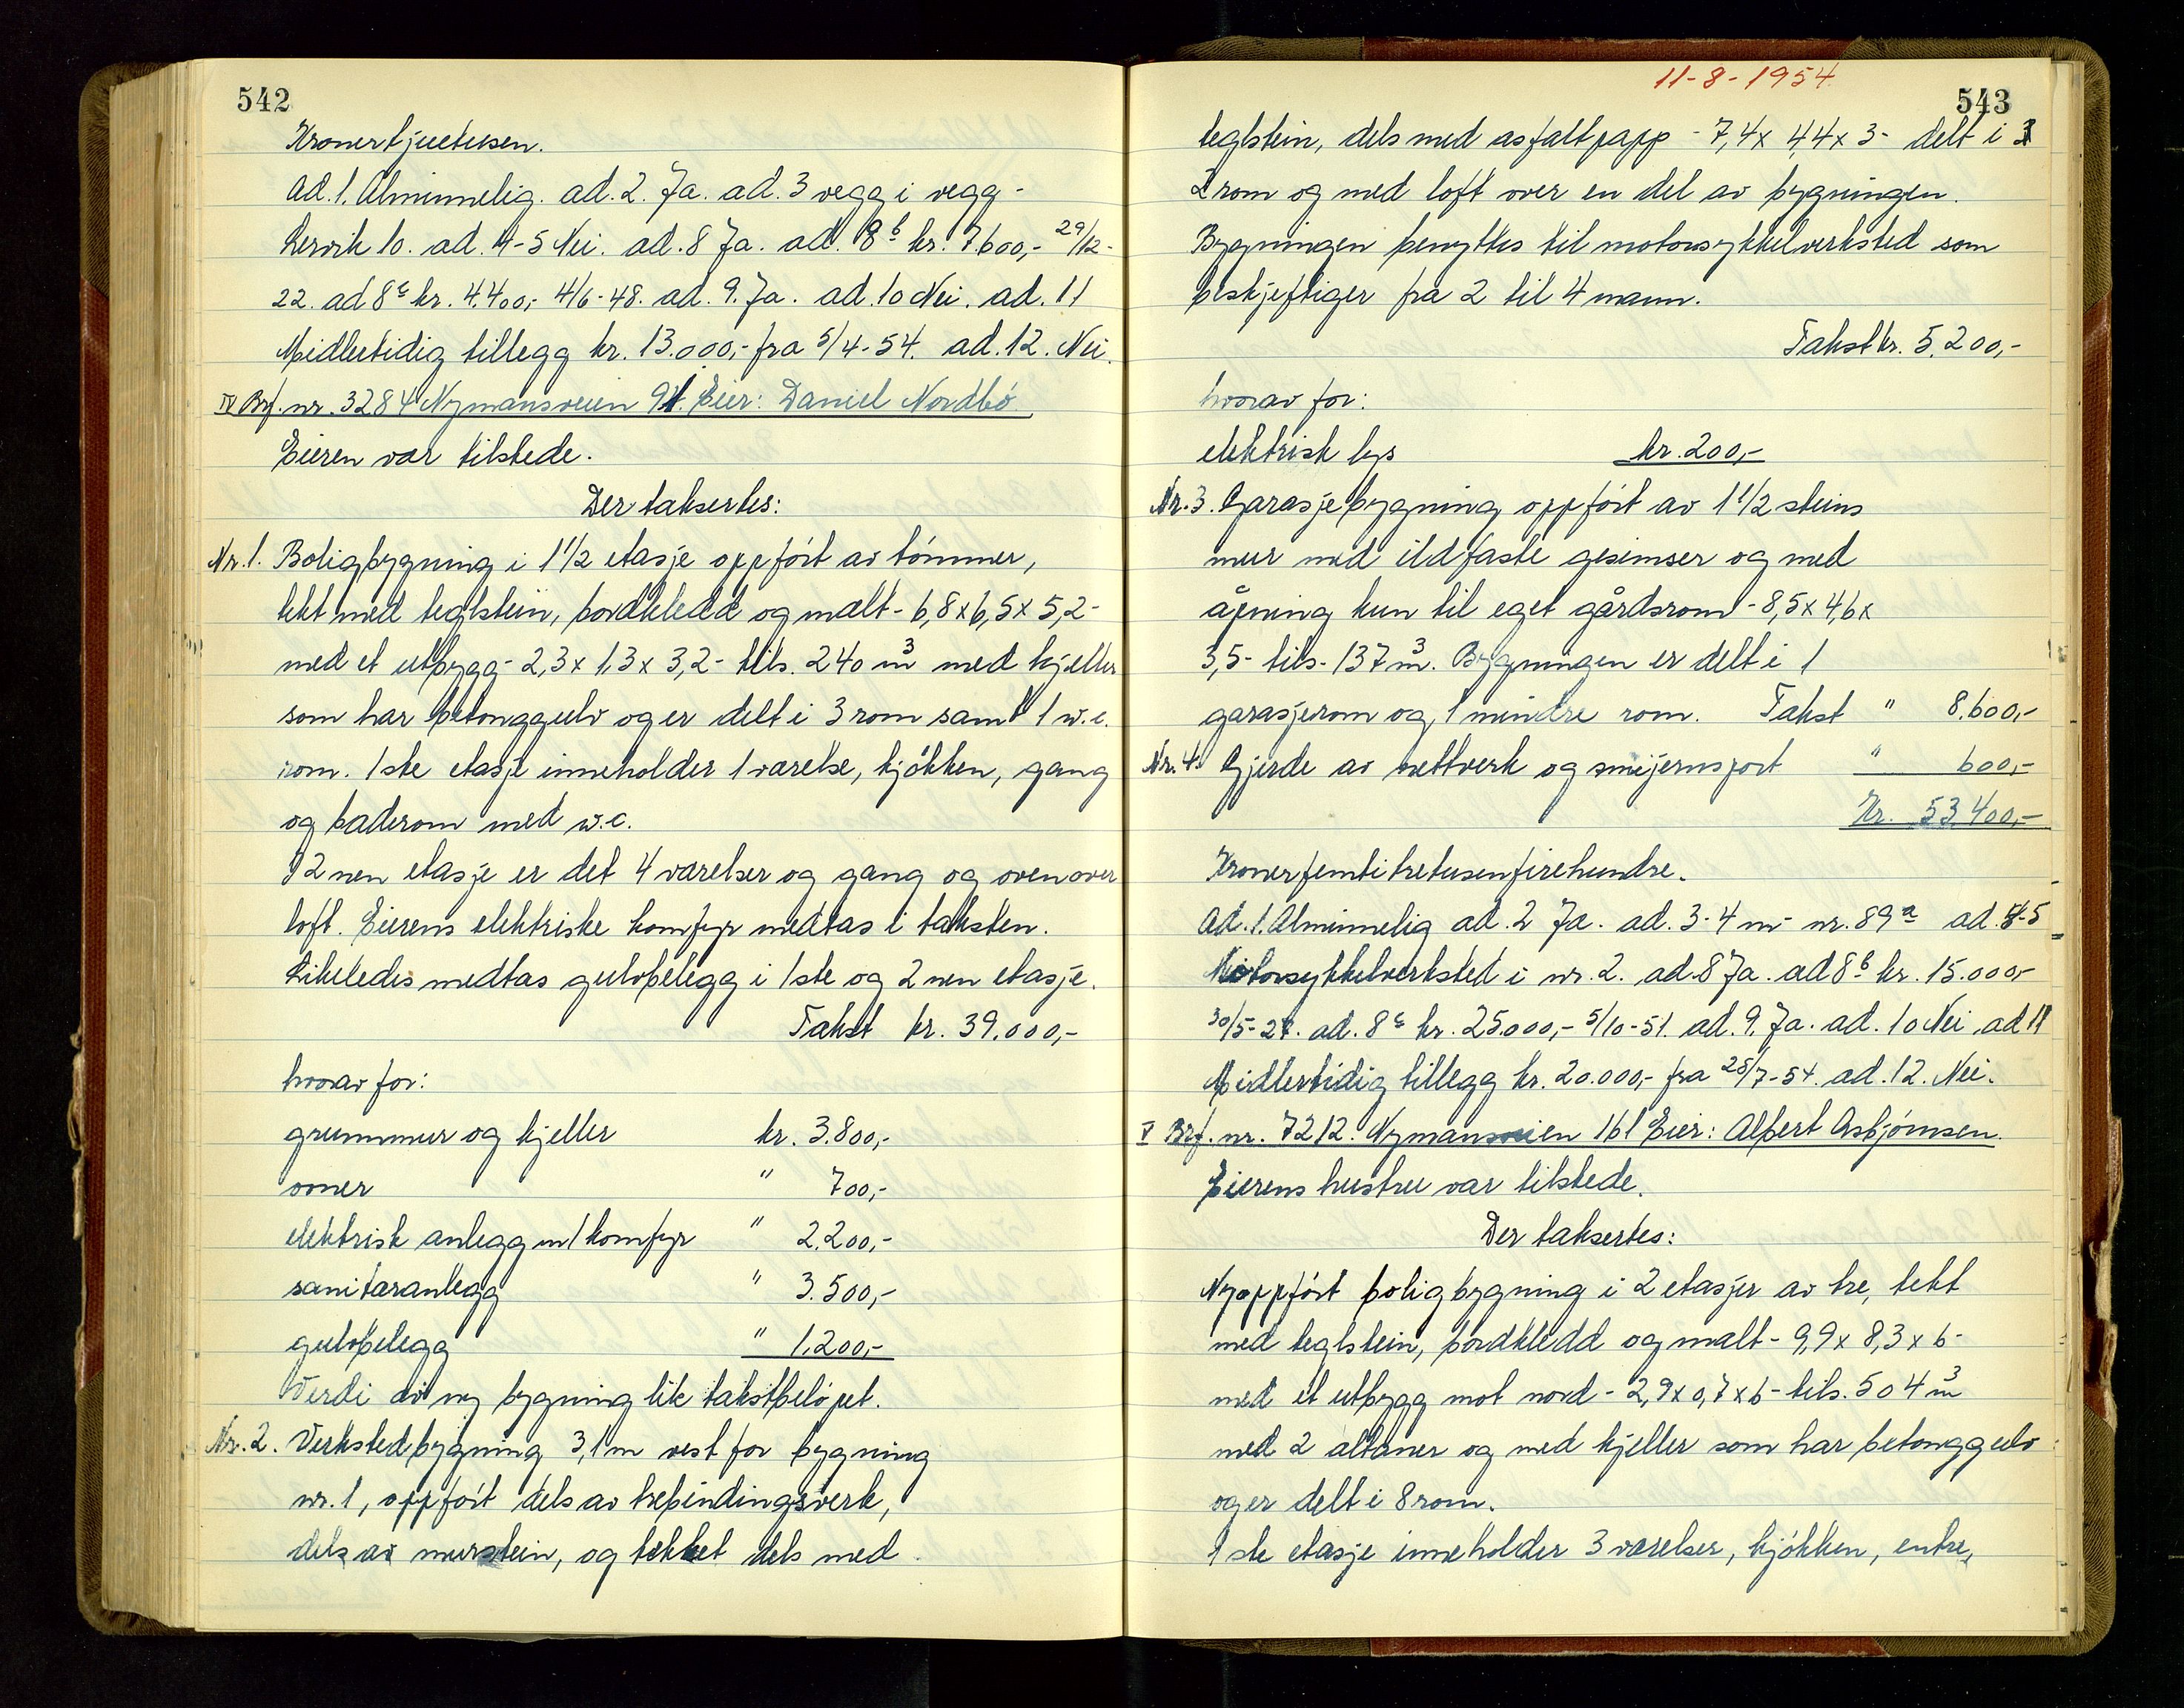 542
Kroner tjuetusen.
Ad. 1. Alminnelig. ad. 2. Ja. ad. 3 vegg i vegg -
Lervik 10. ad. 4-5 Nei. ad. 8 Ja. ad. 8b kr. 7.600,- 29/12-
22. ad 8c kr. 4.400,- 4/6-48. ad. 9. Ja. ad. 10 Nei. ad. 11
Midlertidig tillegg kr. 13.000,- fra 5/4-54. ad. 12. Nei.
IV Brf. nr. 3284 Nymansveien 91. Eier: Daniel Nordbó
Eieren var tilstede.
Der takseres:
Nr. 1. Boligbygning i 1 1/2 etasje oppfórt av tómmer,
tekt med teglstein, bordkledd og malt - 6,8 x 6,5 x 5,2 -
med et utbygg - 2,3 x 1,3 x 3,2 - tils. 240 m3 med kjeller
som har betonggulv og er delt i 3 rom samt 1 w.c.
rom. 1ste etasje inneholder 1 værelse, kjókken, gang
og baderom med w.c.
I 2nen etasje er det 4 værelser og gang og ovenover
loft. Eierens elektriske komfyr medtas i taksten.
Likeledes medtas gulvbelegg i 1ste og 2nen etasje.
Takst kr. 39.000,-
hvorav for:
grunnmur og kjeller kr. 3.800,-
ovner " 700,-
elektrisk anlegg m/komfyr " 2.200,-
sanitæranlegg " 3.500,-
gulvbelegg " 1.200,-
Verdi av ny bygning lik takstbelópet.
Nr. 2. Verkstedbygning 3,1 m vest for bygning
nr. 1, oppfórt dels av trebindingsverk,
dels av murstein, og tekket dels med
11-8-1954
543
teglstein, dels med asfaltpapp - 7,4 x 4,4 x 3 - delt i
2 rom og med loft over en del av bygningen.
Bygningen benyttes til motorsykkelverksted som
beskjeftiger fra 2 til 4 mann.
Takst kr. 5.200,-
hvorav for:
elektrisk lys kr. 200,-
Nr. 3. Garasjebygning oppfórt av 1 1/2 steins
mur med ildfaste gesimser og med
åpning kun til eget gårdsrom - 8,5 x 4,6 x
3,5 - tils - 137 m3. Bygningen er delt i 1
garasjerom og 1 mindre rom. Takst " 8.600,-
Nr. 4. Gjerde av nettverk og smijernsport " 600,-
Kr. 53.400,-
Kroner femtitretusenfirehundre.
Ad. 1. Alminnelig ad. 2 Ja. ad. 3-4 m - nr. 89a ad. 4-5
Motorsykkelverksted i nr. 2. ad. 8 Ja. ad 8b kr. 15.000,-
30/5-27. ad. 8c kr. 25.000,- 5/10-51. ad. 9. Ja. ad. 10 Nei ad 11
Midlertidig tillegg kr. 20.000,- fra 28/7-54. ad. 12. Nei.
V Brf. nr. 7212. Nymansveien 161 Eier: Albert Asbjórnsen.
Eierens hustru var tilstede.
Der takseres:
Nyoppfórt boligbygning i 2 etasjer av tre, tekt
med teglstein, bordkledd og malt - 9,9 x 8,3 x 6 -
med et utbygg mot nord - 2,9 x 0,7 x 6 - tils. 504 m3
med 2 altaner og med kjeller som har betonggulv
og er delt i 8 rom.
1ste etasje inneholder 3 værelser, kjókken, entre,